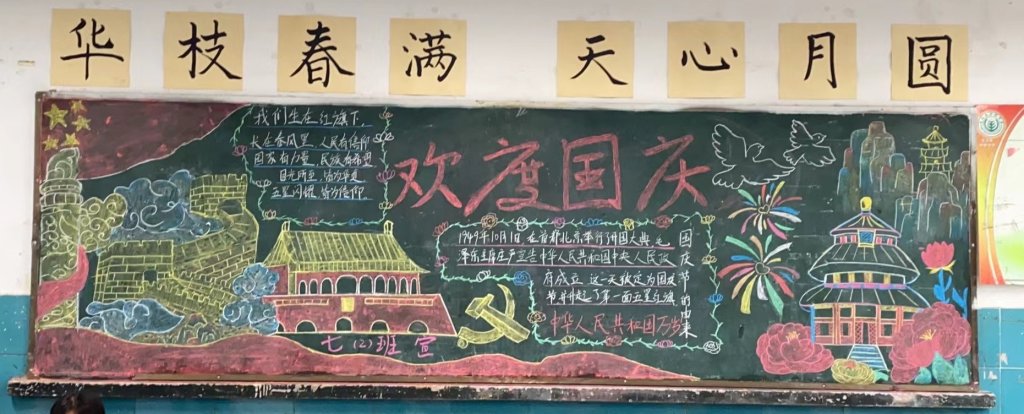 华枝春满 天心月圆
我们生在红旗下,
长在春风里 人民有信仰
国家有力量 民族有希望
目光所至 皆为华夏
五星闪耀 皆为信仰
欢度国庆
国庆节的由来
1949年10月1日 在首都北京举行开国大典 毛
泽东主席庄严宣告中华人民共和国中央人民政
府成立 这一天被定为国庆
节并升起了第一面五星红旗
中华人民共和国万岁
七(2)班 宣